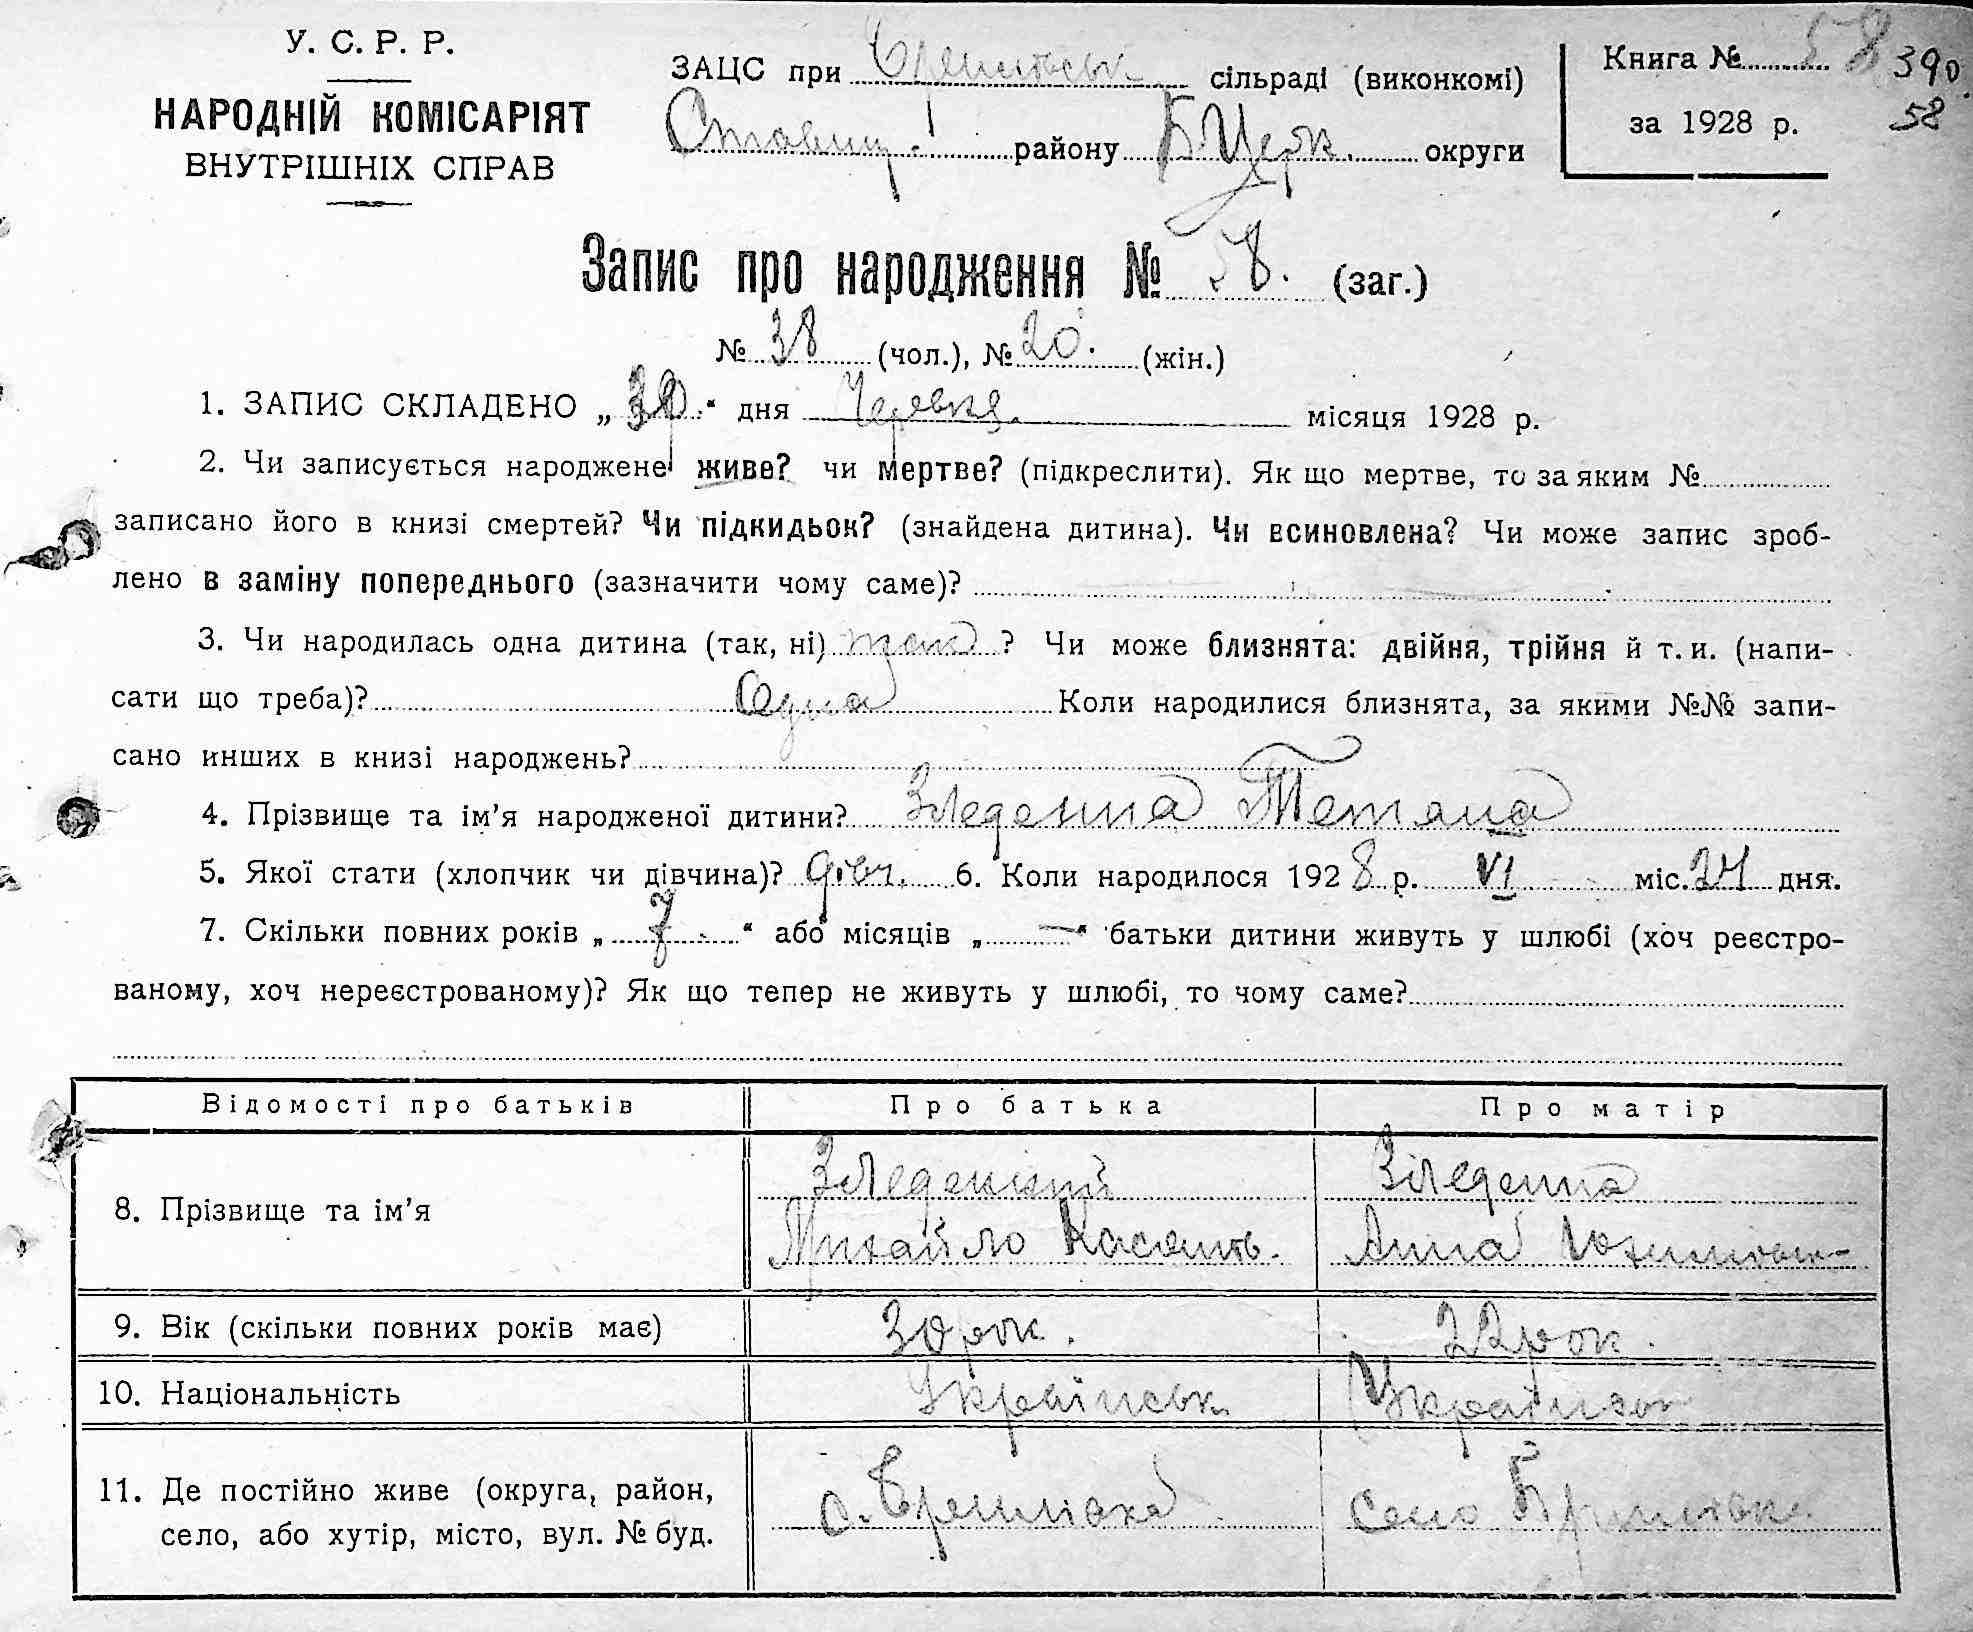 У. С. Р. Р.
НАРОДНІЙ КОМІСАРІЯТ
ВНУТРІШНІХ СПРАВ
ЗАЦС при сільраді (виконкомі)
Ставищ. району Б Церк. округи
Книга № 58 390
за 1928 р. 58
Запис про народження № 58. (заг.)
№ 38 (чол.), № 20. (жін.)
1. ЗАПИС СКЛАДЕНО „ “ дня Червня. місяця 1928 р.
2. Чи записується народжене живе? чи мертве? (підкреслити). Як що мертве, то за яким №
записано його в книзі смертей? Чи підкидьок? (знайдена дитина). Чи всиновлена? Чи може запис зроб-
лено в заміну попереднього (зазначити чому саме)?
3. Чи народилась одна дитина (так, ні) так ? Чи може близнята: двійня, трійня й т. и. (напи-
сати що треба)? Одна Коли народилися близнята, за якими №№ запи-
сано инших в книзі народжень?
4. Прізвище та ім’я народженої дитини? Зледенна Тетяна
5. Якої стати (хлопчик чи дівчина)? дівч. 6. Коли народилося 1928 р. VI міс. 24 дня.
7. Скільки повних років „ 7 “ або місяців „ — “ батьки дитини живуть у шлюбі (хоч реєстро-
ваному, хоч нереєстрованому)? Як що тепер не живуть у шлюбі, то чому саме?
Відомості про батьків Про батька Про матір
8. Прізвище та ім’я
Зледенна
Михайло Анна
9. Вік (скільки повних років має) 30 рок. 22 рок.
10. Національність Українськ. Українськ
11. Де постійно живе (округа, район,
село, або хутір, місто, вул. № буд.
с. село